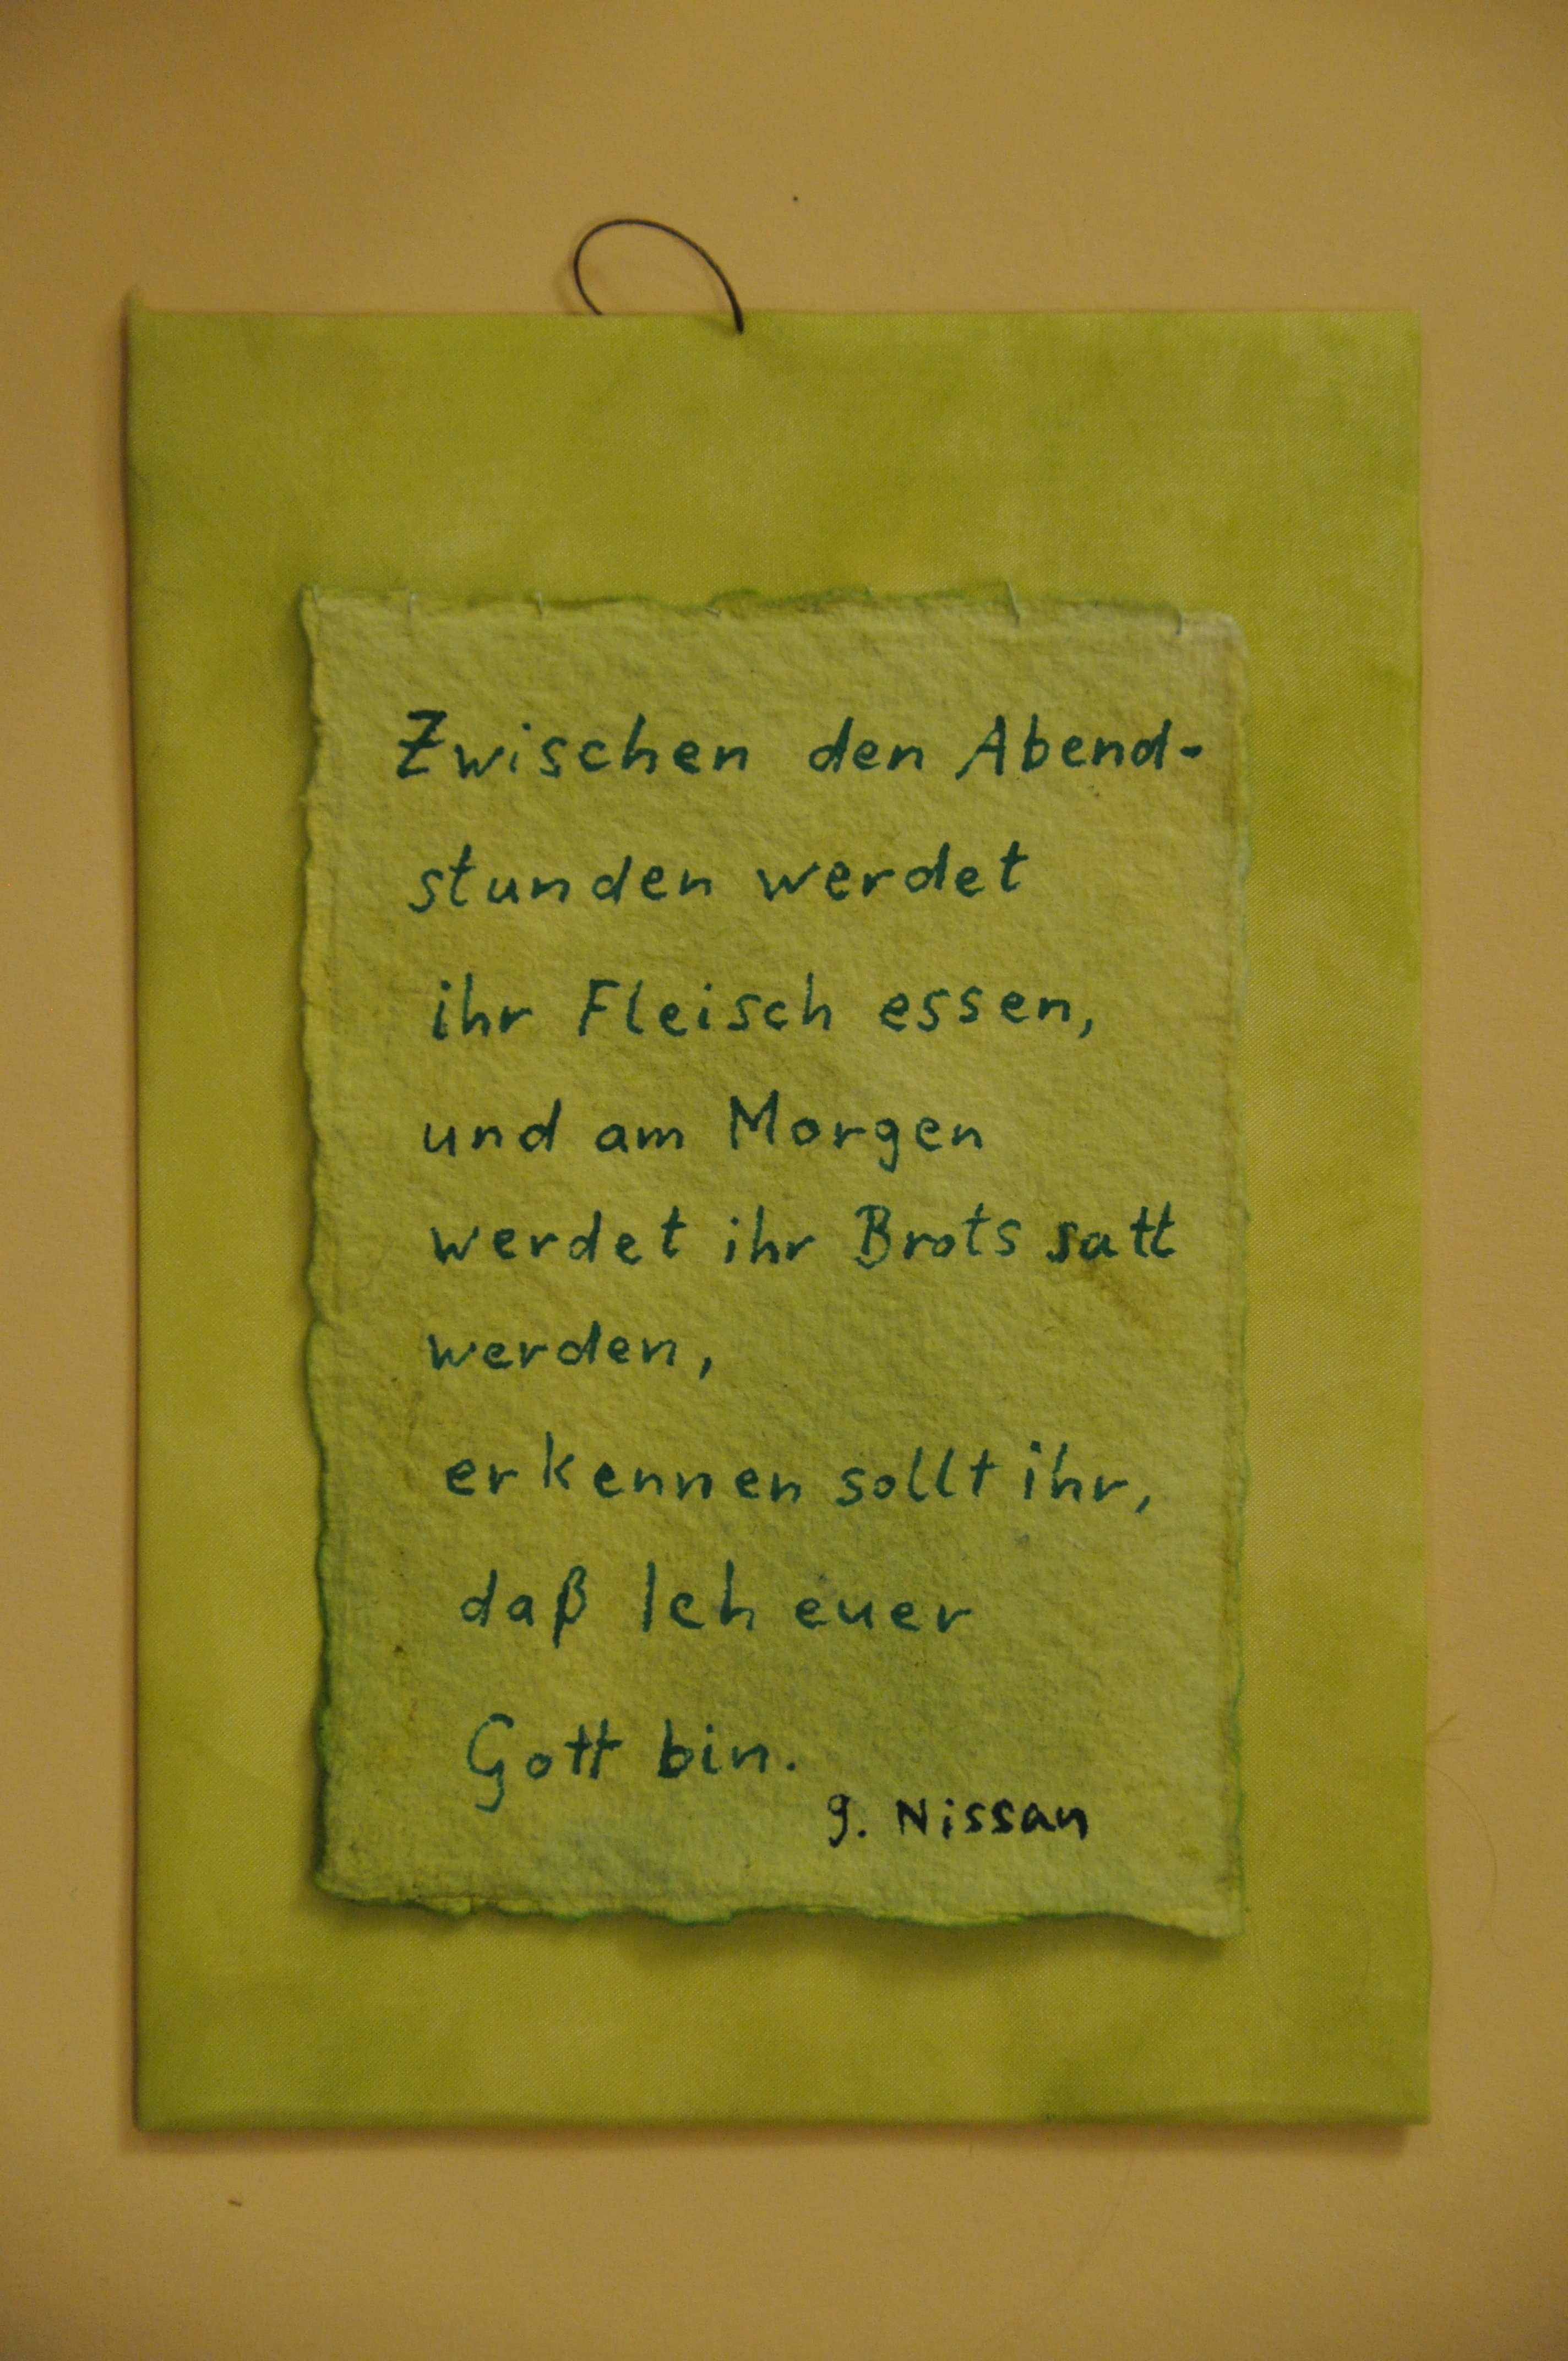 Zwischen den Abend-
stunden werdet
ihr Fleisch essen,
und am Morgen
werdet ihr Brots satt
werden,
erkennen sollt ihr,
daß Ich euer
Gott bin.
g. Nissan